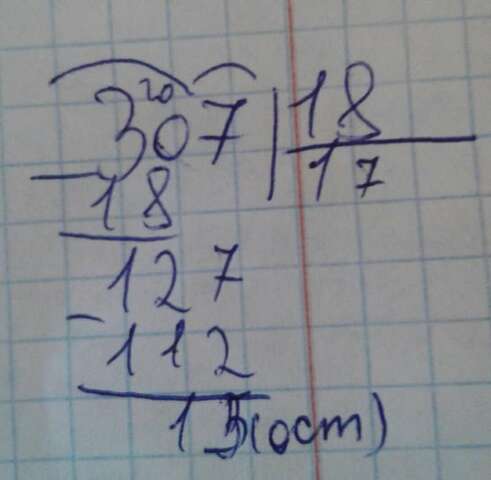 20
307 | 18
- 18 17
127
- 112
15 (ост)